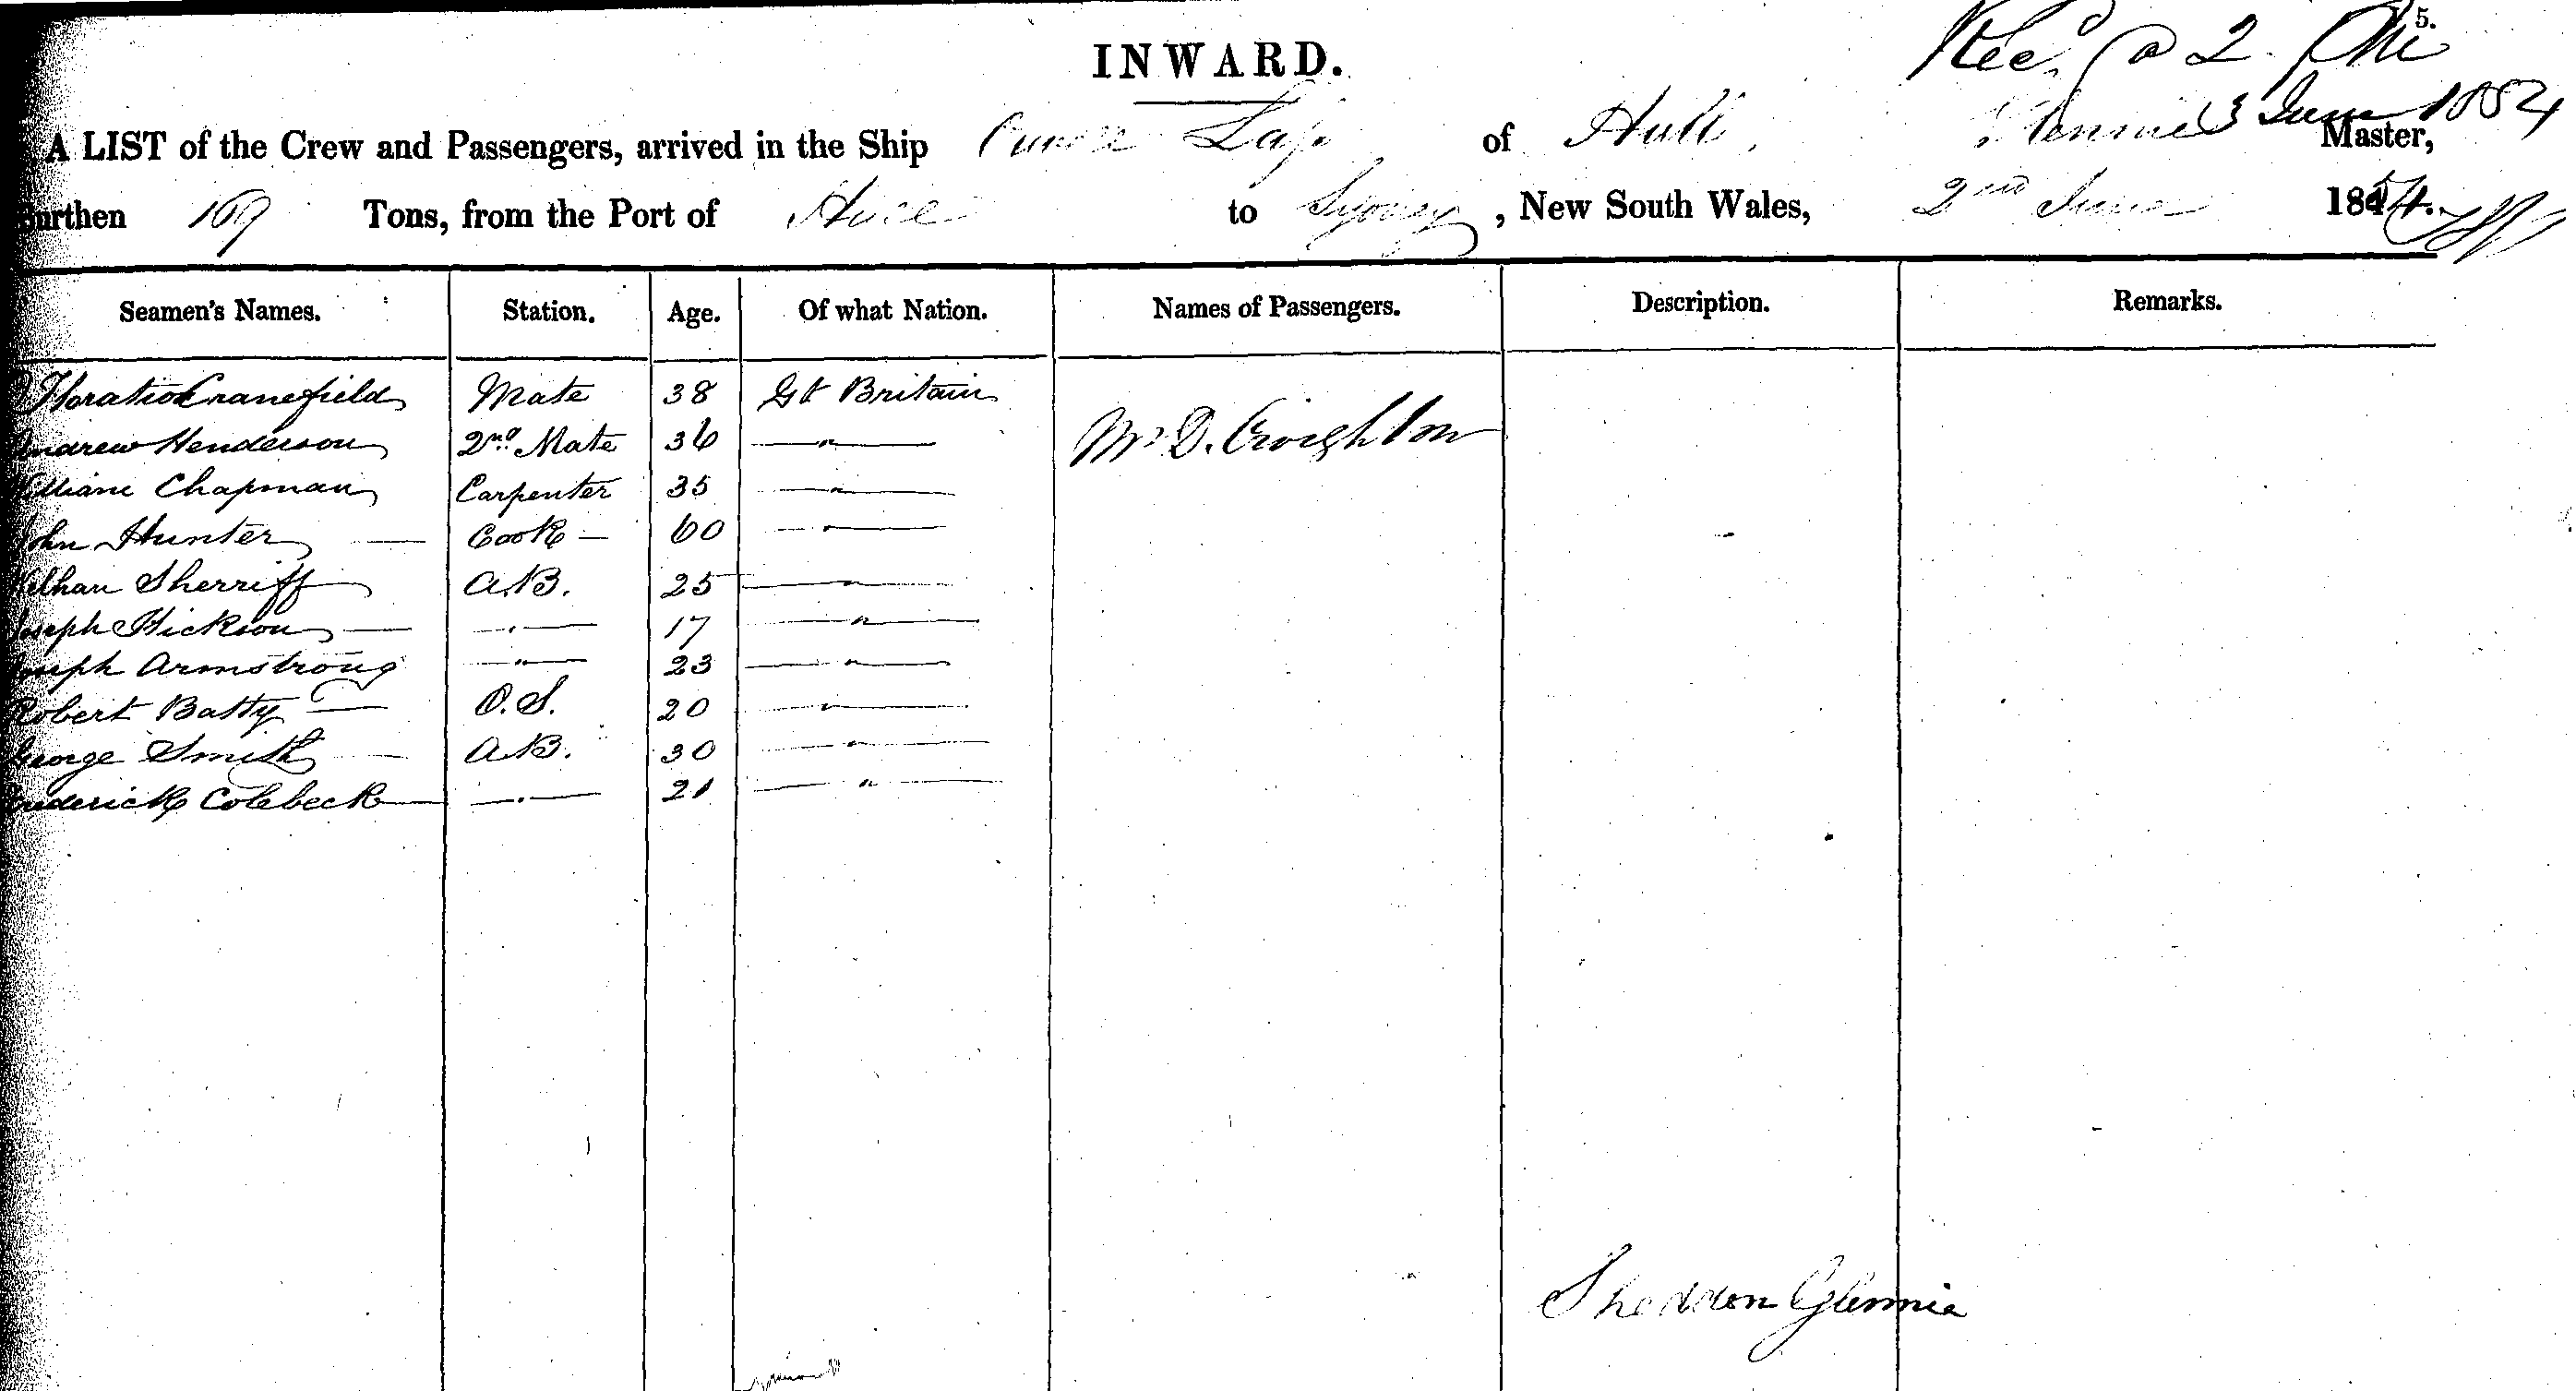 5.
Recd @ 2 PM
3 June 1854
INWARD.
A LIST of the Crew and Passengers, arrived in the Ship of Hull Master,
Burthen 169 Tons, from the Port of to Sydney, New South Wales, 2nd June 1854.
Seamen's Names. Station. Age. Of what Nation. Names of Passengers. Description. Remarks.
Horatio Cranefield Mate 38 Gt Britain
Mr D. Croighton
Andrew Henderson 2nd Mate 36 — " —
William Chapman Carpenter 35 — " —
John Hunter — Cook — 60 — " —
Sherriff A.B. 25 — " —
Joseph Hickson — — " — 17 — " —
Joseph Armstrong — " — 23 — " —
Robert Batty — O.S. 20 — " —
George Smith — A.B. 30 — " —
Frederick Colebeck — — " — 21 — " —
Sheddon Glennie